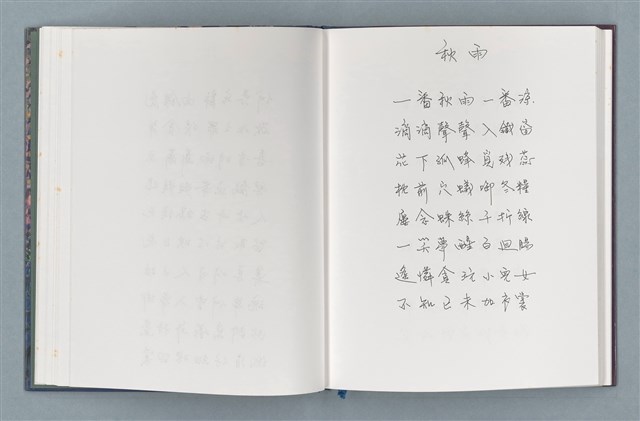 秋雨
一番秋雨一番涼
滴滴聲聲入鐵窗
花下孤蜂覓殘蕊
枕前穴蟻啣冬糧
塵念蛛絲千折線
一笑夢醒百迴腸
遙憐小兒女
不知已未加衣裳